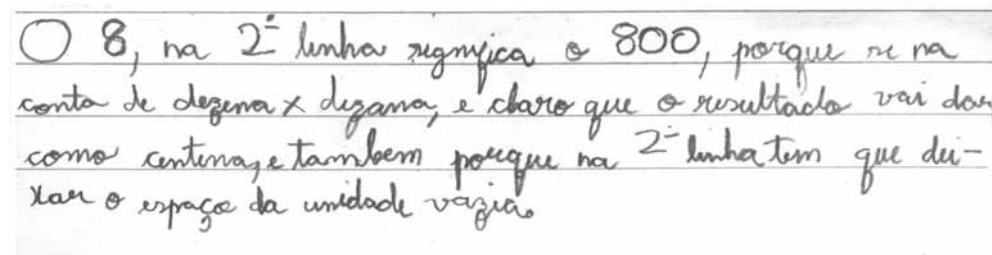 O 8, na 2ª linha significa o 800, porque se na
conta de dezena x dezana, e claro que o resultado vai dar
como centena, e tambem porque na 2ª linha tem que dei-
xar o espaço da unidade vazia.